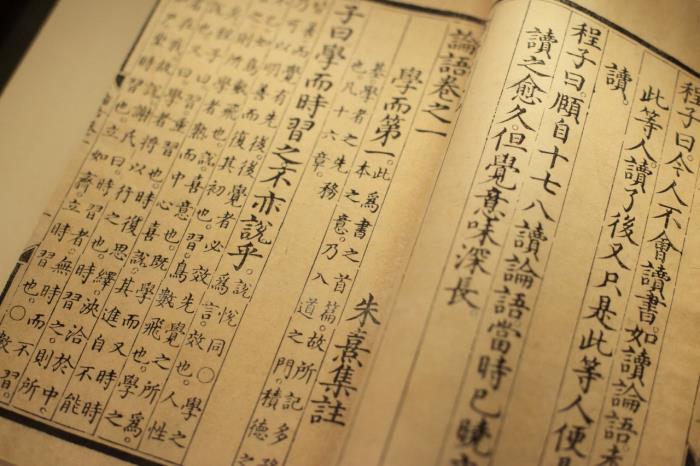 程子曰今人不會讀書。如讀論語。
此等人讀了後又只是此等人便是
讀。
程子曰。頤自十七八讀論語當時已曉
讀之愈久。但覺意味深長
論語卷之一
朱熹集註
學而第一。此爲書之首篇。故所記多務
本之意。乃入道之門。積德之
基。學者之先務也。凡十六章。
子曰學而時習之不亦說乎。說悅同○學
之爲言效也。人性
皆善。而覺有先後。後覺者必效先覺之所
爲。乃可以明善而復其初也。習鳥數飛也。學之
不已。如鳥數飛也。說喜意也。既學而又時時
習之。則所學者熟。而中心喜說。其進自不能
已矣。程子曰。習重習也。時復思繹。浹洽於中。
則說也。又曰。學者將以行之也。時習之則所
學者在我。故說。謝氏曰。時習者。無時而不習。
坐如尸。坐時習也。立如齊。立時習也。○